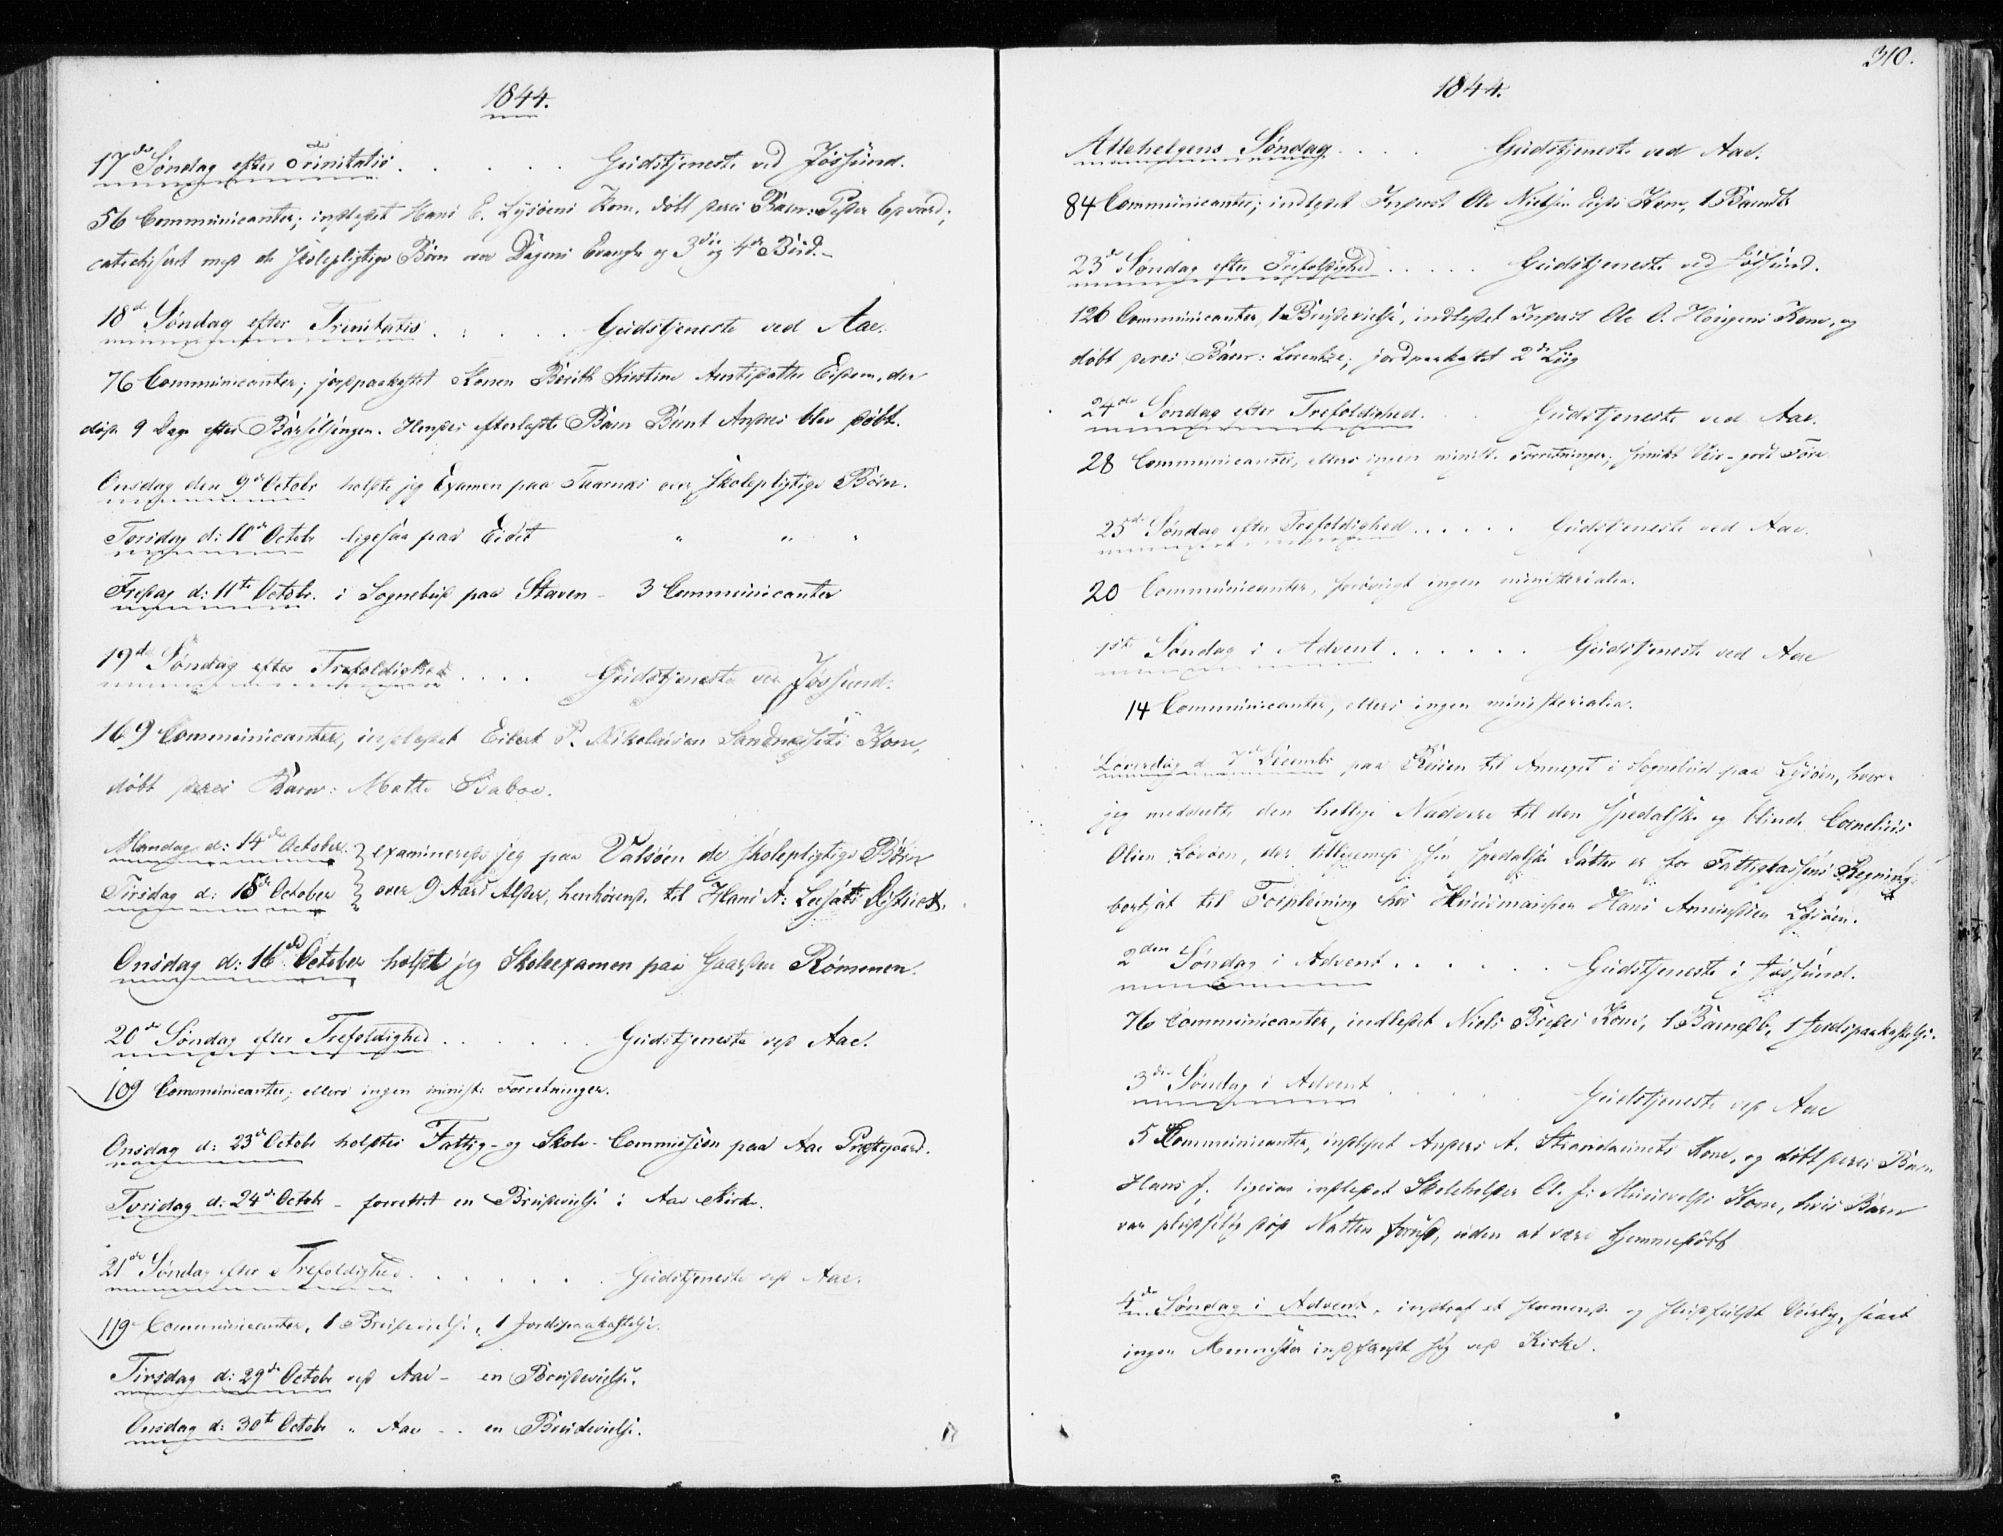 1844.
17de Søndag efter Trinitatis . . . . . Gudstjeneste ved Jøssund.
56 Communicanter; indledet Hans E. Lysøens Kone, døbt deres Barn: Peder Edvard;
catechiseret med de skolepligtige Børn over Dagens Evangl. og 3die og 4de Bud. -
18de Søndag efter Trinitatis . . . . Gudstjeneste ved Aae.
76 Communicanter; jordpaakastet Konen Berith Kirstine Eidem, der
døde 9 Dage efter Barselsengen. Hendes efterladte Barn Bernt Andreas blev døbt.
Onsdag den 9de Octobr holdte jeg Examen paa Taarnæs over skolepligtige Børn.
Torsdag d: 10de Octobr ligesaa paa Eidet " " "
Fredag d: 11te Octobr. i Sognebud paa Staven - 3 Communicanter
19de Søndag efter Trefoldighed . . . . Gudstjeneste ved Jøssund.
169 Communicanter, indledet Eilert P. Nikolaisen Sandnæssets Kone,
døbt deres Barn: Mette
Mandag d: 14de October. } examinerede jeg paa Valsøen de skolepligtige Børn
Tirsdag d: 15de October } over 9 Aars Alder, henhørende til Hans A: District.
Onsdag d: 16de October holdt jeg Skoleexamen paa Gaarden Rømmen.
20de Søndag efter Trefoldighed . . . . . . Gudstjeneste ved Aae.
109 Communicanter; ellers ingen minist: Forretninger.
Onsdag d: 23de Octobr holdtes Fattig- og Skole-Commission paa Aae Prestgaard.
Torsdag d: 24de Octobr - forrettet en Brudevielse i Aae Kirke.
21de Søndag efter Trefoldighed . . . . . . Gudstjeneste ved Aae.
119 Communicanter, 1 Brudevielse, 1 Jordspaakastelse.
Tirsdag d: 29de Octobr ved Aae - en Brudevielse.
Onsdag d: 30te Octobr " Aae - - en Brudevielse.
310.
1844.
Allehelgens Søndag . . . . Gudstjeneste ved Aae.
84 Communicanter; indledet Ole Nielsen Kone, 1 Barnedb
23de Søndag efter Trefoldighed . . . . . Gudstjeneste ved Jøssund.
126 Communicanter, 1 Brudevielse, indledet Ole O. Kone, og
døbt deres Barn: Lorentze; jordpaakastet 2de Liig
24de Søndag efter Trefoldighed . . . Gudstjeneste ved Aae.
28 Communicanter, ellers ingen minist. Forretninger; smukt Veir - godt Føre
25de Søndag efter Trefoldighed . . . . . Gudstjeneste ved Aae.
20 Communicanter, forøvrigt ingen ministerialia.
1ste Søndag i Advent . . . . . . Gudstjeneste ved Aae
14 Communicanter, ellers ingen ministerialia.
Løverdag d 7de Decembr paa Reisen til Annexet i Sognebud paa Lysøen, hvor
jeg meddeelte den hellige Nadvere til den spedalske og blinde Cornelius
Olsen Løvøen, der tilligemed sin spedalske Datter er for Fattigkassens Regning
bortsat til Forpleining hos Huusmanden Hans Lysøen.
2den Søndag i Advent . . . . . . Gudstjeneste i Jøssund.
76 Communicanter, indledet Niels Kone, 1 Barnedb, 1 Jordspaakastelse.
3die Søndag i Advent . . . . . . Gudstjeneste ved Aae
5 Communicanter, indledet Anders A. Kone, og døbt deres Barn
Hans J; ligesaa indledet Skoleholder O. J: Kone, hvis Barn
var pludselig død Natten forud, uden at være hjemmedøbt
4de Søndag i Advent, indtraf et stormende og Veirlig, saa at
ingen Mennesker indfandt sig ved Kirke.